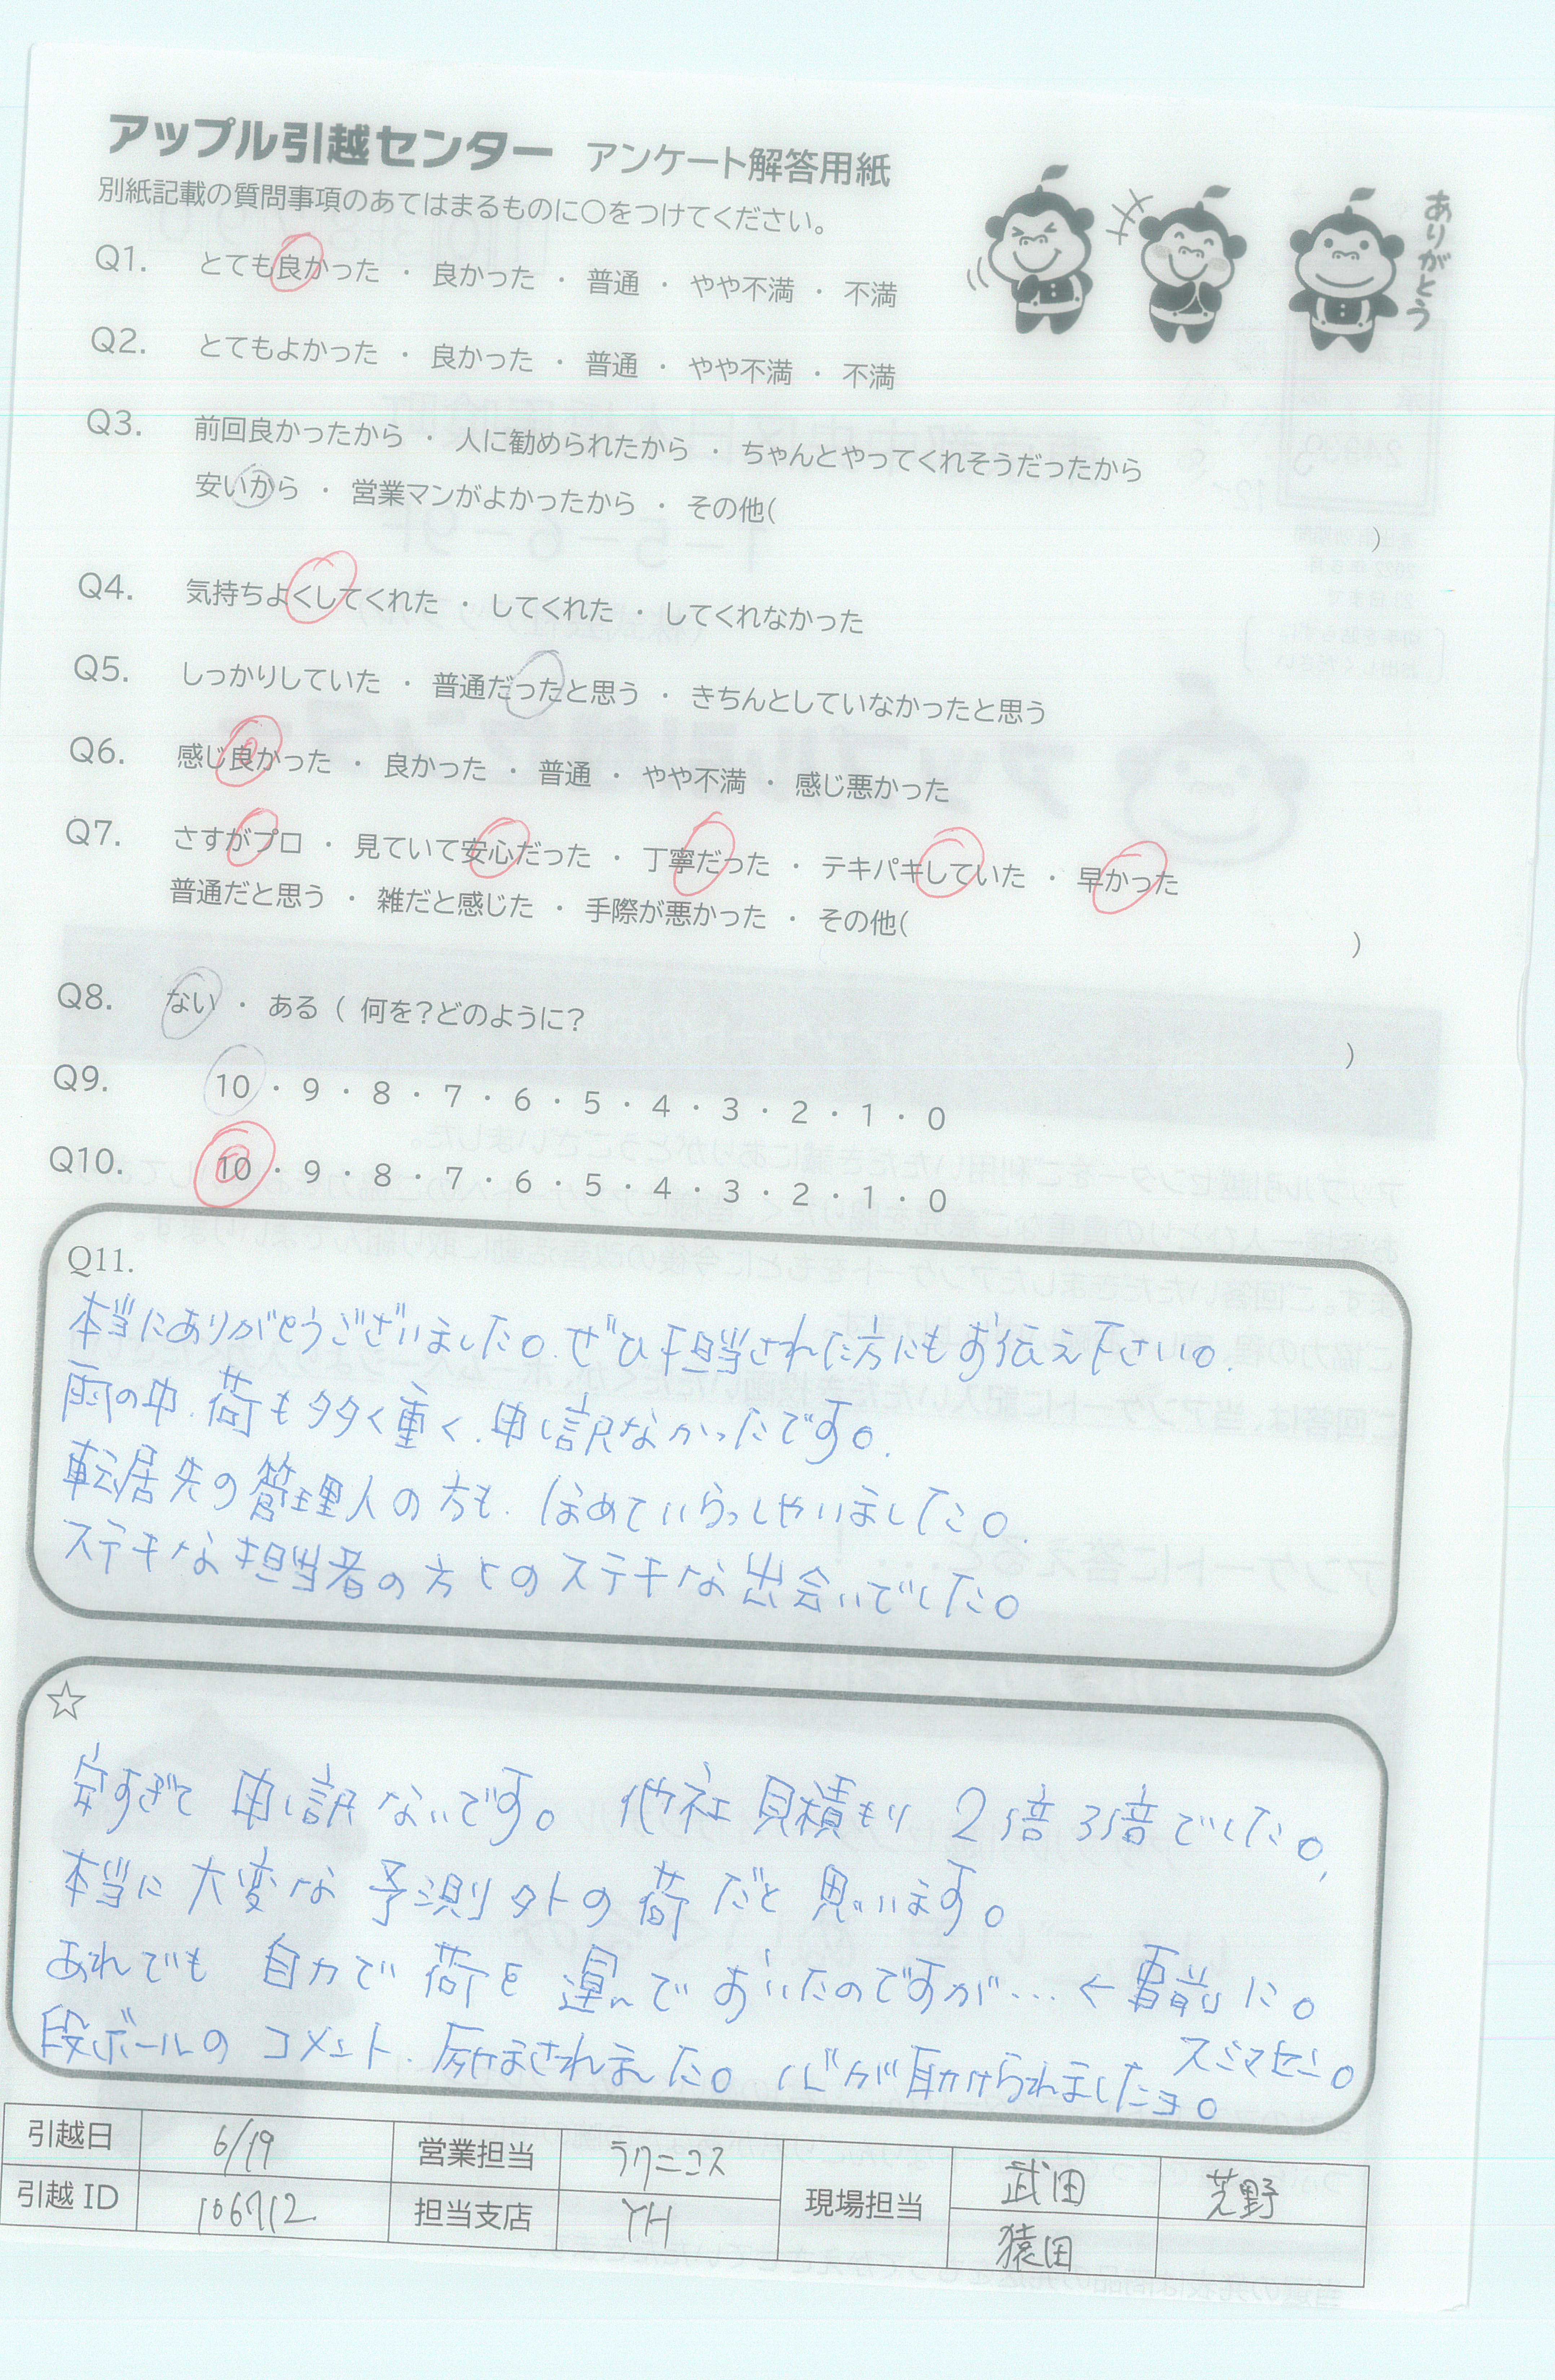 アップル引越センター アンケート解答用紙
別紙記載の質問事項のあてはまるものに○をつけてください。
ありがとう
Q1. とても良かった ・ 良かった ・ 普通 ・ やや不満 ・ 不満
Q2. とてもよかった ・ 良かった ・ 普通 ・ やや不満 ・ 不満
Q3. 前回良かったから ・ 人に勧められたから ・ ちゃんとやってくれそうだったから
安いから ・ 営業マンがよかったから ・ その他( )
Q4. 気持ちよくしてくれた ・ してくれた ・ してくれなかった
Q5. しっかりしていた ・ 普通だったと思う ・ きちんとしていなかったと思う
Q6. 感じ良かった ・ 良かった ・ 普通 ・ やや不満 ・ 感じ悪かった
Q7. さすがプロ ・ 見ていて安心だった ・ 丁寧だった ・ テキパキしていた ・ 早かった
普通だと思う ・ 雑だと感じた ・ 手際が悪かった ・ その他( )
Q8. ない ・ ある ( 何を?どのように? )
Q9. 10 ・ 9 ・ 8 ・ 7 ・ 6 ・ 5 ・ 4 ・ 3 ・ 2 ・ 1 ・ 0
Q10. 10 ・ 9 ・ 8 ・ 7 ・ 6 ・ 5 ・ 4 ・ 3 ・ 2 ・ 1 ・ 0
Q11.
本当にありがとうございました。ぜひ担当された方にもお伝え下さい。
雨の中、荷も多く重く、申し訳なかったです。
転居先の管理人の方も、ほめていらっしゃいました。
ステキな担当者の方とのステキな出会いでした。
☆
安すぎて 申し訳ないです。 他社見積もり 2倍3倍でした。
本当に大変な予測外の荷だと思います。
あれでも 自力で荷を運んでおいたのですが… ← 事前に。
段ボールのコメント、励まされました。心が助けられましたヨ。 スミマセン。
引越日 6/19 営業担当 ラクニコス 現場担当 武田 芝野
引越ID 106712 担当支店 YH 猿田